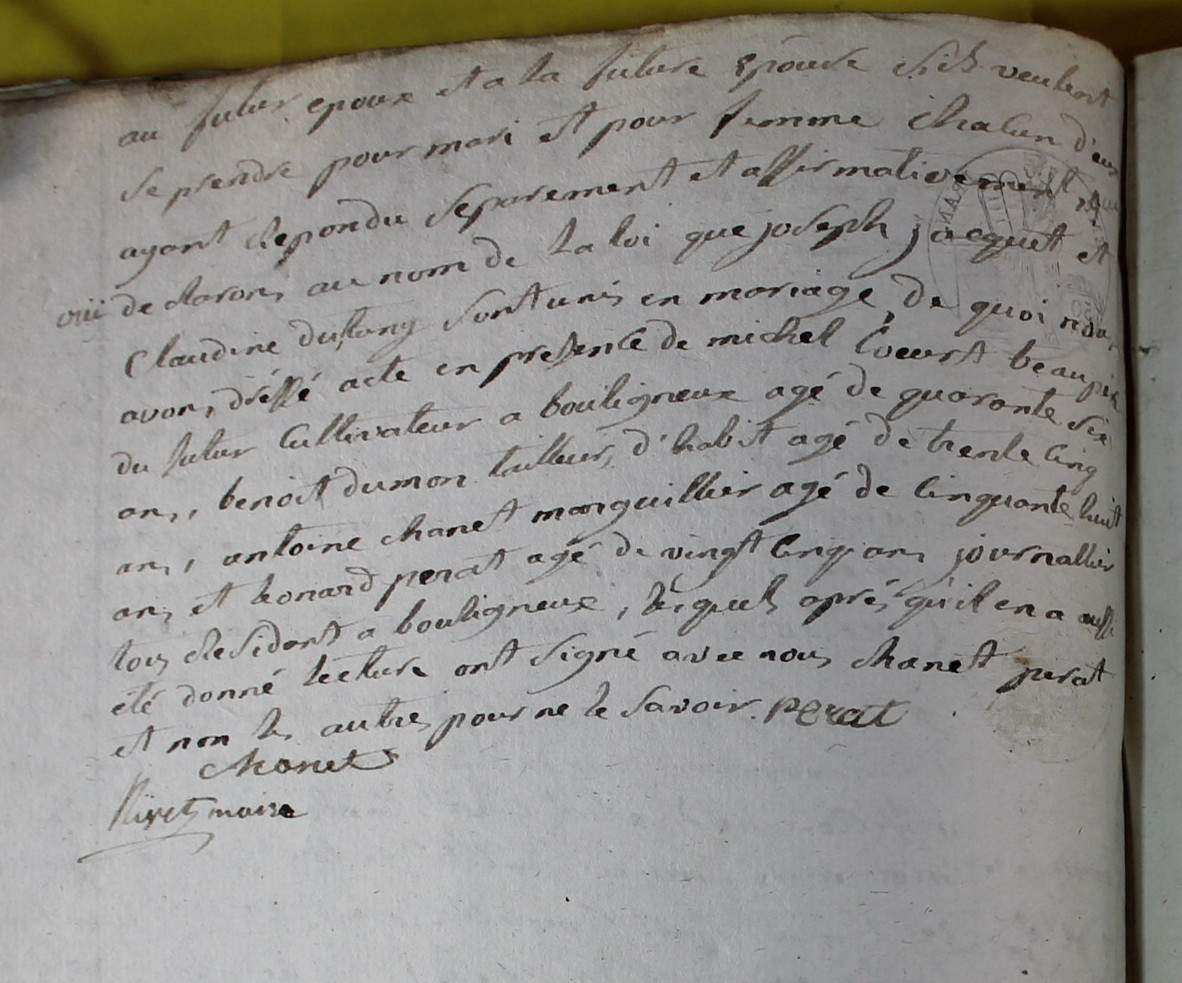 au futur epoux et a la future epouse s'ils veulent
se prendre pour mari et pour femme chacun d'eux
ayant repondu separement et affirmativement
oui declarons au nom de la loi que joseph jacquet et
Claudine dustang sont unis en mariage, de quoi nous
avons dréssé acte en presence de michel beaupere
du futur cultivateur a bouligneux agé de quarante six
ans, benoit dumon tailleur d'habit agé de trente cinq
ans, antoine chanet marguillier agé de cinquante huit
ans et leonard perat agé de vingt cinq ans journallier
tous residant a bouligneux, lesquels aprés qu'il en a
été donné lecture ont signé avec nous chanet perat
et non les autres pour ne le savoir. perat
chanet
maire